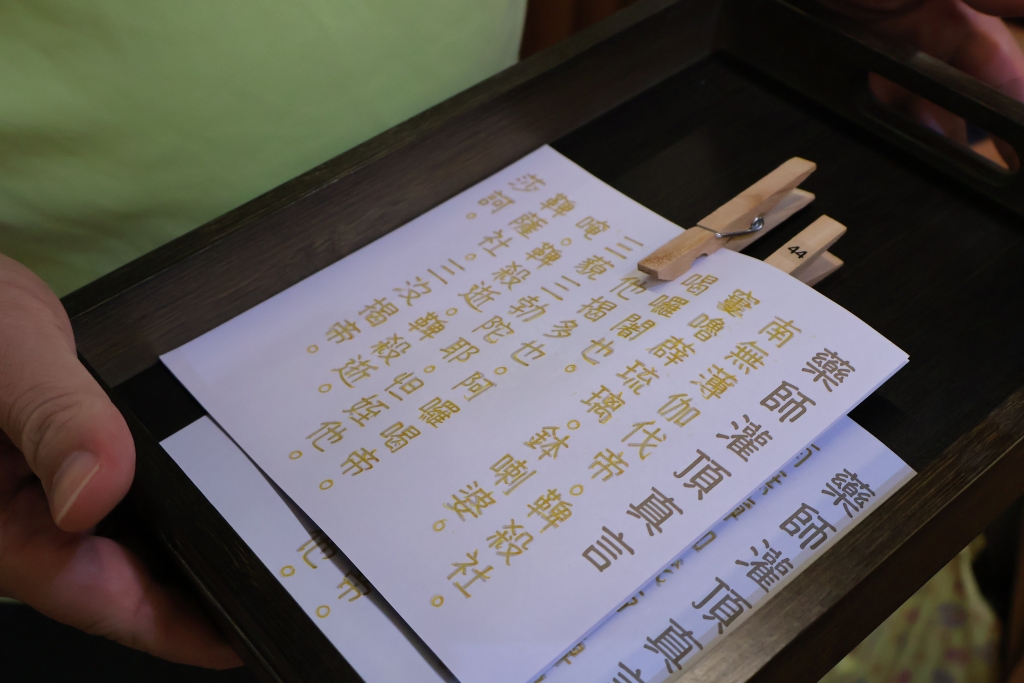 藥師灌頂真言
南無薄伽伐帝。鞞殺社。
窶嚕薜琉璃。鉢喇婆。
喝囉闍也。
他揭多也。阿囉喝帝。
三藐三勃陀耶。怛姪他。
唵。鞞殺逝。鞞殺逝。
鞞薩社。三沒揭帝。
莎訶。
藥師灌頂真
帝。
他。
44